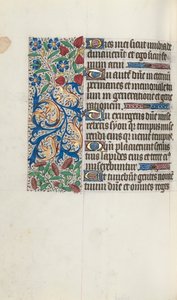 Dies mei sicut umbra de
clinaverunt et ego sicut fe
num arui
Tu aute dne in eternu
permanes et memoriale tu
um in generatione et gene
rationem
Tu exurgens dne mise
reberis syon q tempus mise
rendi eius q venit tempus
Qm placuerunt servis
tuis lapides eius et terre
miserebuntur
Et timebunt gentes nomen
tuum dne et omnes reges